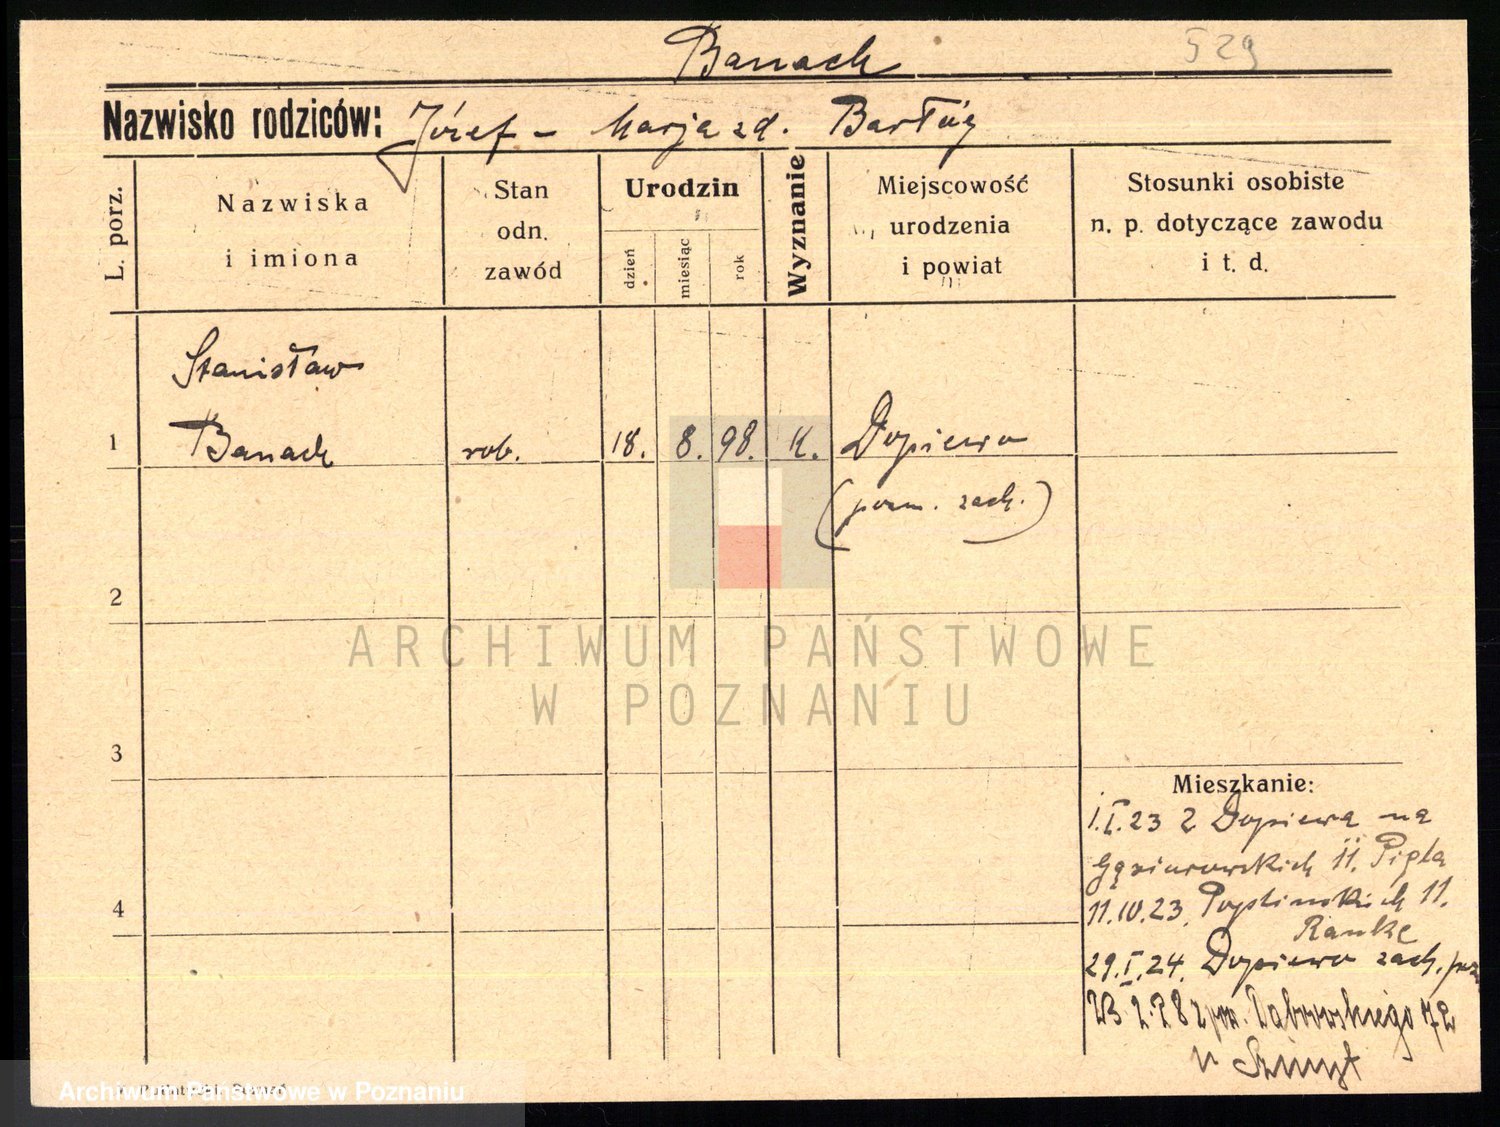 Banach
529
Nazwisko rodziców: Józef - Marja zd.
L. porz.
Nazwiska i imiona
Stan odn. zawód
Urodzin
dzień
miesiąc
rok
Wyznanie
Miejscowość urodzenia i powiat
Stosunki osobiste n. p. dotyczące zawodu i t. d.
Stanisław
1 Banach rob. 18. 8. 98. K. Dopiewo
(pozn. zach.)
2
3
4
Mieszkanie:
1.I.23 z Dopiewa na
Gąsiorowskich 11. Pigła
11.IV.23. 11.
Ranke
29.I.24. Dopiewo zach.
Dąbrowskiego
ARCHIWUM PAŃSTWOWE
W POZNANIU
Archiwum Państwowe w Poznaniu